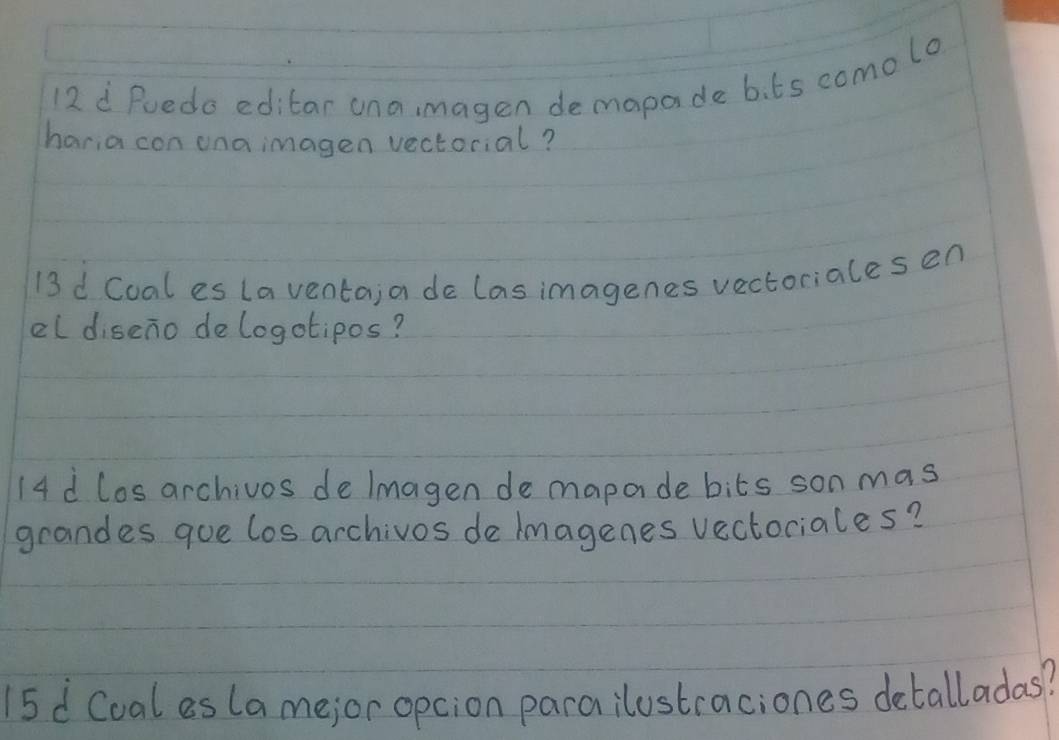 12 ¿ Puedo editar una imagen de mapa de bits como lo
haria con una imagen vectorial?
13 ¿ Cual es la ventaja de las imagenes vectoriales en
el diseño de logotipos?
14 ¿ los archivos de Imagen de mapa de bits son mas
grandes que los archivos de Imagenes vectoriales?
15 ¿ Cual es la mejor opcion para ilustraciones detalladas?